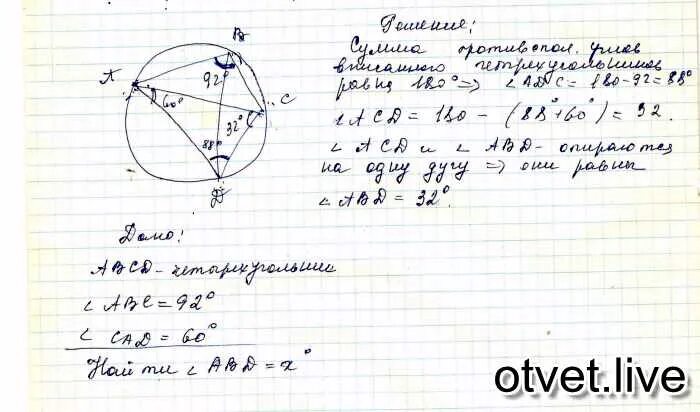 Решение:
Сумма противопол. углов
вписанного четырехугольников
равна 180° => ∠ADC = 180-92=88°
∠ACD = 180 - (88°+60°) = 32.
∠ACD и ∠ABD - опираются
на одну дугу => они равны
∠ABD = 32°.
B
A
92°
60°
C
32°
88°
D
Дано:
ABCD - четырехугольник
∠ABC = 92°
∠CAD = 60°
Найти ∠ABD = x°
otvet.live